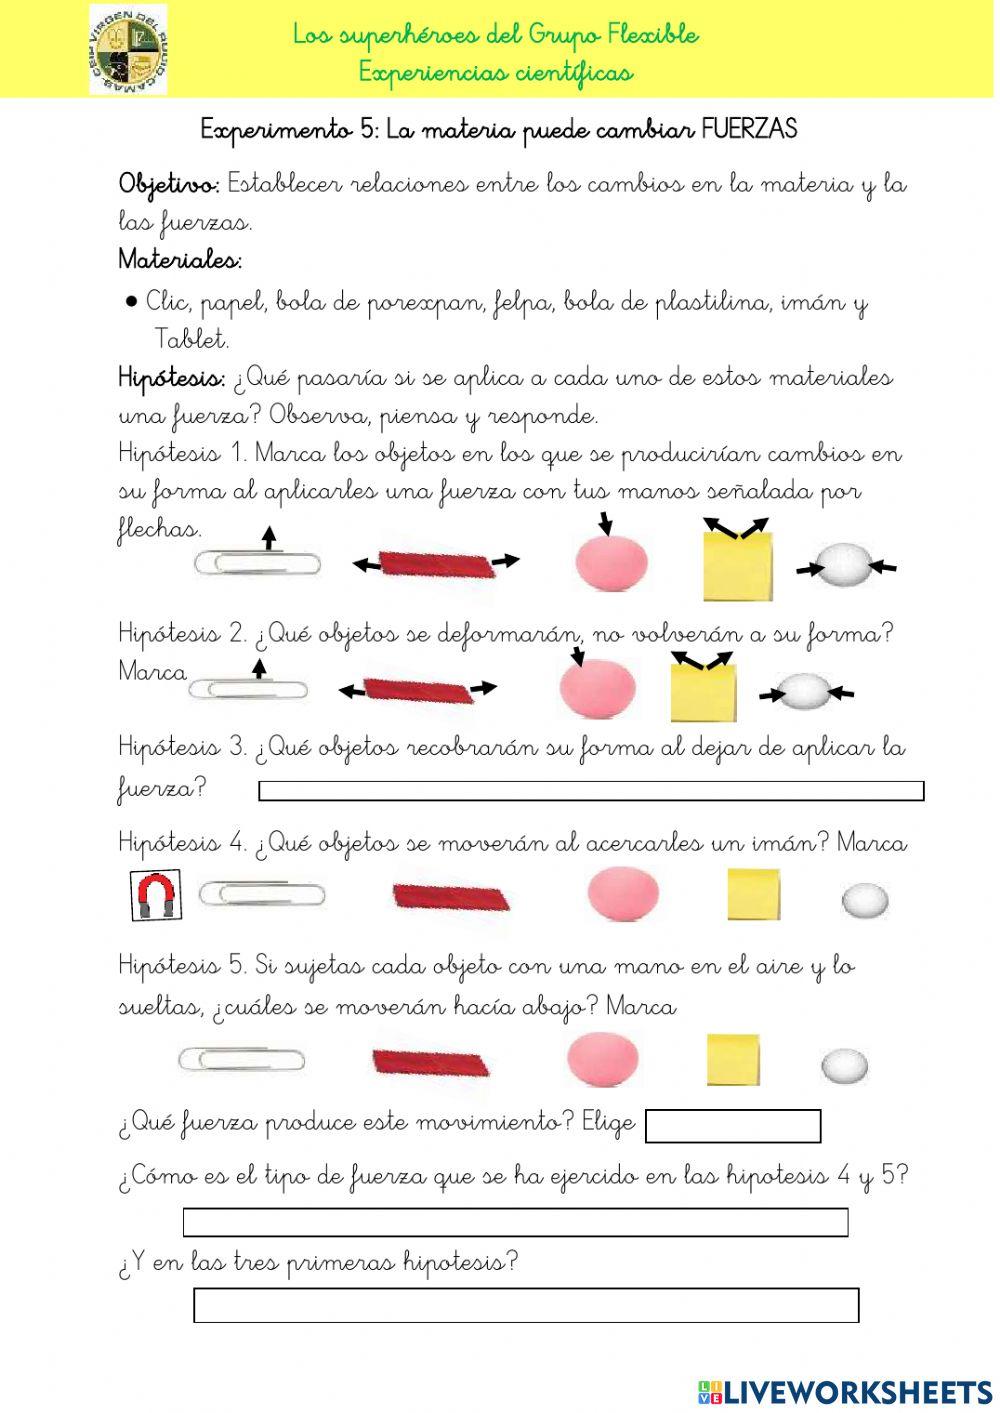 CEIP VIRGEN DEL ROCIO-CAMAS
Los superhéroes del Grupo Flexible
Experiencias científicas
Experimento 5: La materia puede cambiar FUERZAS
Objetivo: Establecer relaciones entre los cambios en la materia y la
las fuerzas.
Materiales:
● Clic, papel, bola de porexpan, felpa, bola de plastilina, imán y
Tablet.
Hipótesis: ¿Qué pasaría si se aplica a cada uno de estos materiales
una fuerza? Observa, piensa y responde.
Hipótesis 1. Marca los objetos en los que se producirían cambios en
su forma al aplicarles una fuerza con tus manos señalada por
flechas.
Hipótesis 2. ¿Qué objetos se deformarán, no volverán a su forma?
Marca
Hipótesis 3. ¿Qué objetos recobrarán su forma al dejar de aplicar la
fuerza?
Hipótesis 4. ¿Qué objetos se moverán al acercarles un imán? Marca
Hipótesis 5. Si sujetas cada objeto con una mano en el aire y lo
sueltas, ¿cuáles se moverán hacía abajo? Marca
¿Qué fuerza produce este movimiento? Elige
¿Cómo es el tipo de fuerza que se ha ejercido en las hipotesis 4 y 5?
¿Y en las tres primeras hipotesis?
LIVE LIVEWORKSHEETS